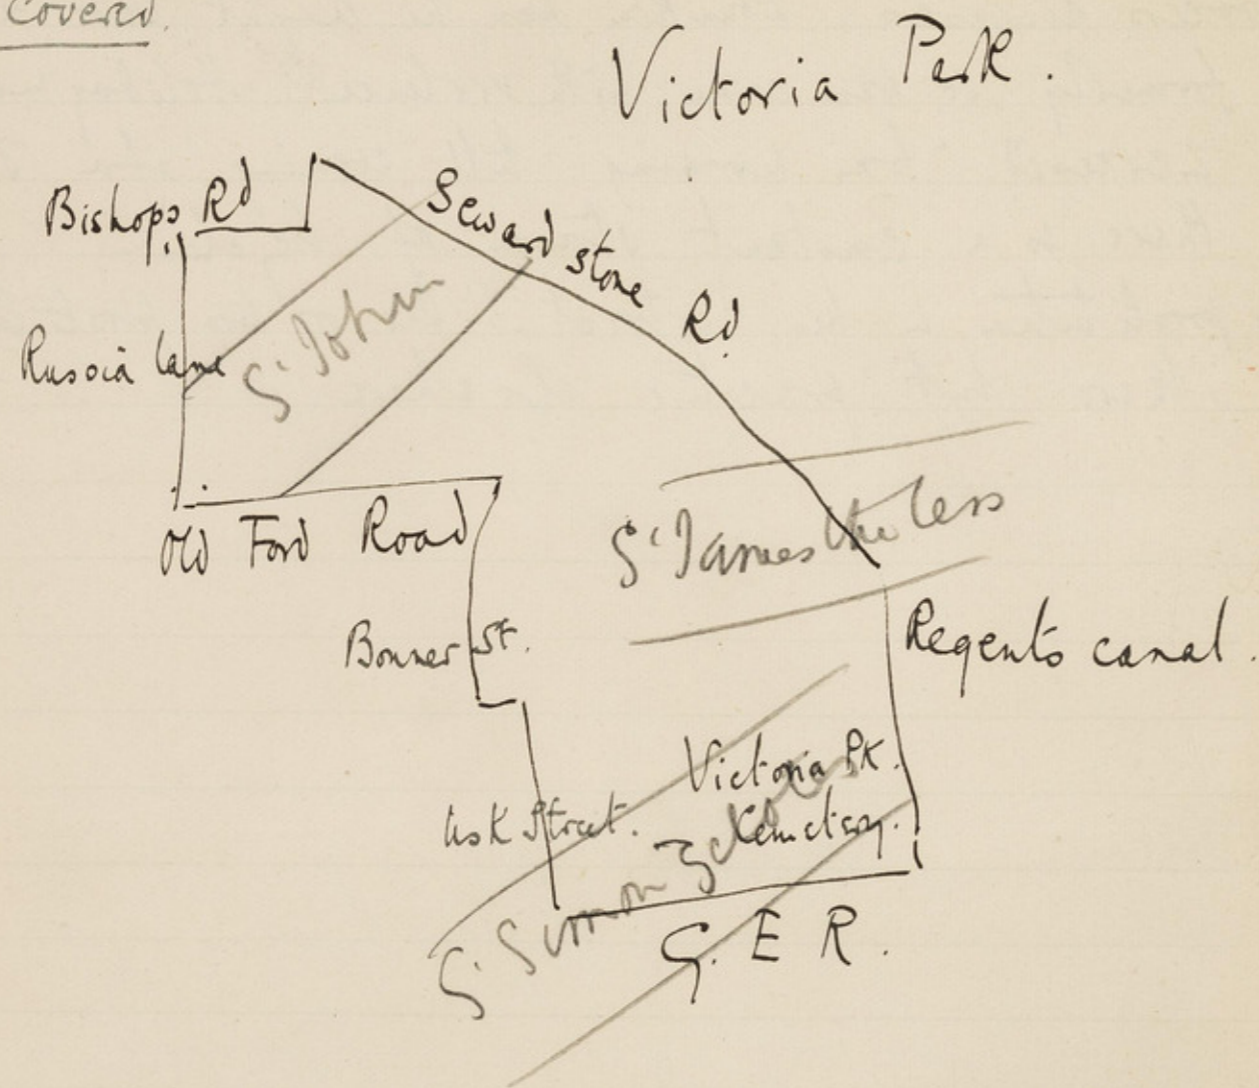 Covered.
Victoria Park.
Bishops Rd
Sewardstone Rd.
Russia Lane
St John
Old Ford Road
St James the Less
Bonner St.
Regents canal.
Victoria Pk.
Cemetery.
Usk Street.
St Simon Zelotes
G. E R.